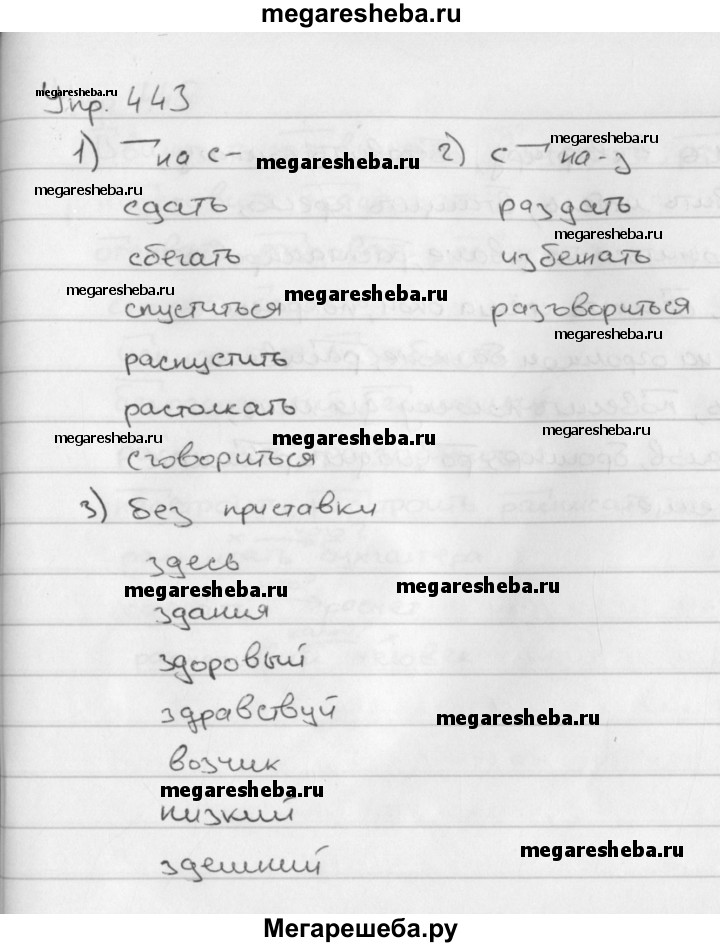 megaresheba.ru
megaresheba.ru
Упр. 443
1) ¬ на с- megaresheba.ru 2) с ¬ на -з megaresheba.ru
megaresheba.ru
сдать раздать
megaresheba.ru
сбегать избежать
megaresheba.ru megaresheba.ru
спуститься разъвориться
megaresheba.ru
распустить
растолкать
megaresheba.ru megaresheba.ru megaresheba.ru
сговориться
3) без приставки
здесь
megaresheba.ru megaresheba.ru
здания
здоровый
здравствуй megaresheba.ru
возчик
megaresheba.ru
низкий
здешний megaresheba.ru
Мегарешеба.ру